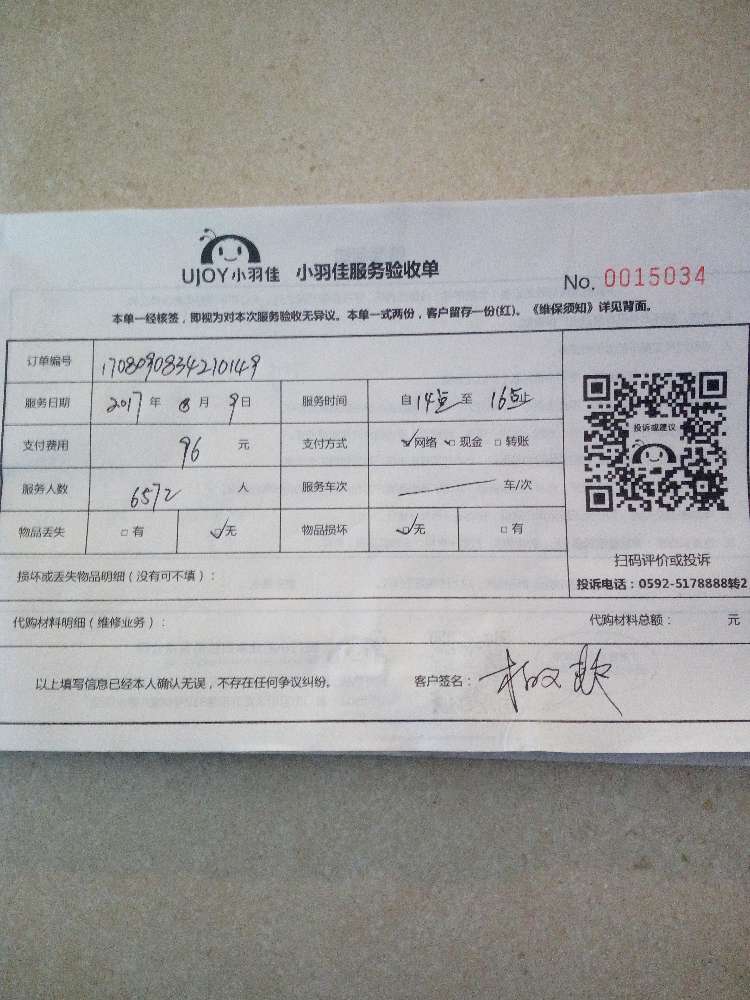 UJOY小羽佳 小羽佳服务验收单
No. 0015034
本单一经核签，即视为对本次服务验收无异议。本单一式两份，客户留存一份(红)。《维保须知》详见背面。
订单编号 1708090834270149
服务日期 2017年 8月 9日 服务时间 自14点至 16点止
支付费用 96 元 支付方式 ☑网络 □现金 □转账
服务人数 6572 人 服务车次 车/次
物品丢失 □有 ☑无 物品损坏 ☑无 □有
投诉或建议
扫码评价或投诉
投诉电话：0592-5178888转2
损坏或丢失物品明细（没有可不填）：
代购材料明细（维修业务）： 代购材料总额： 元
以上填写信息已经本人确认无误，不存在任何争议纠纷。 客户签名：